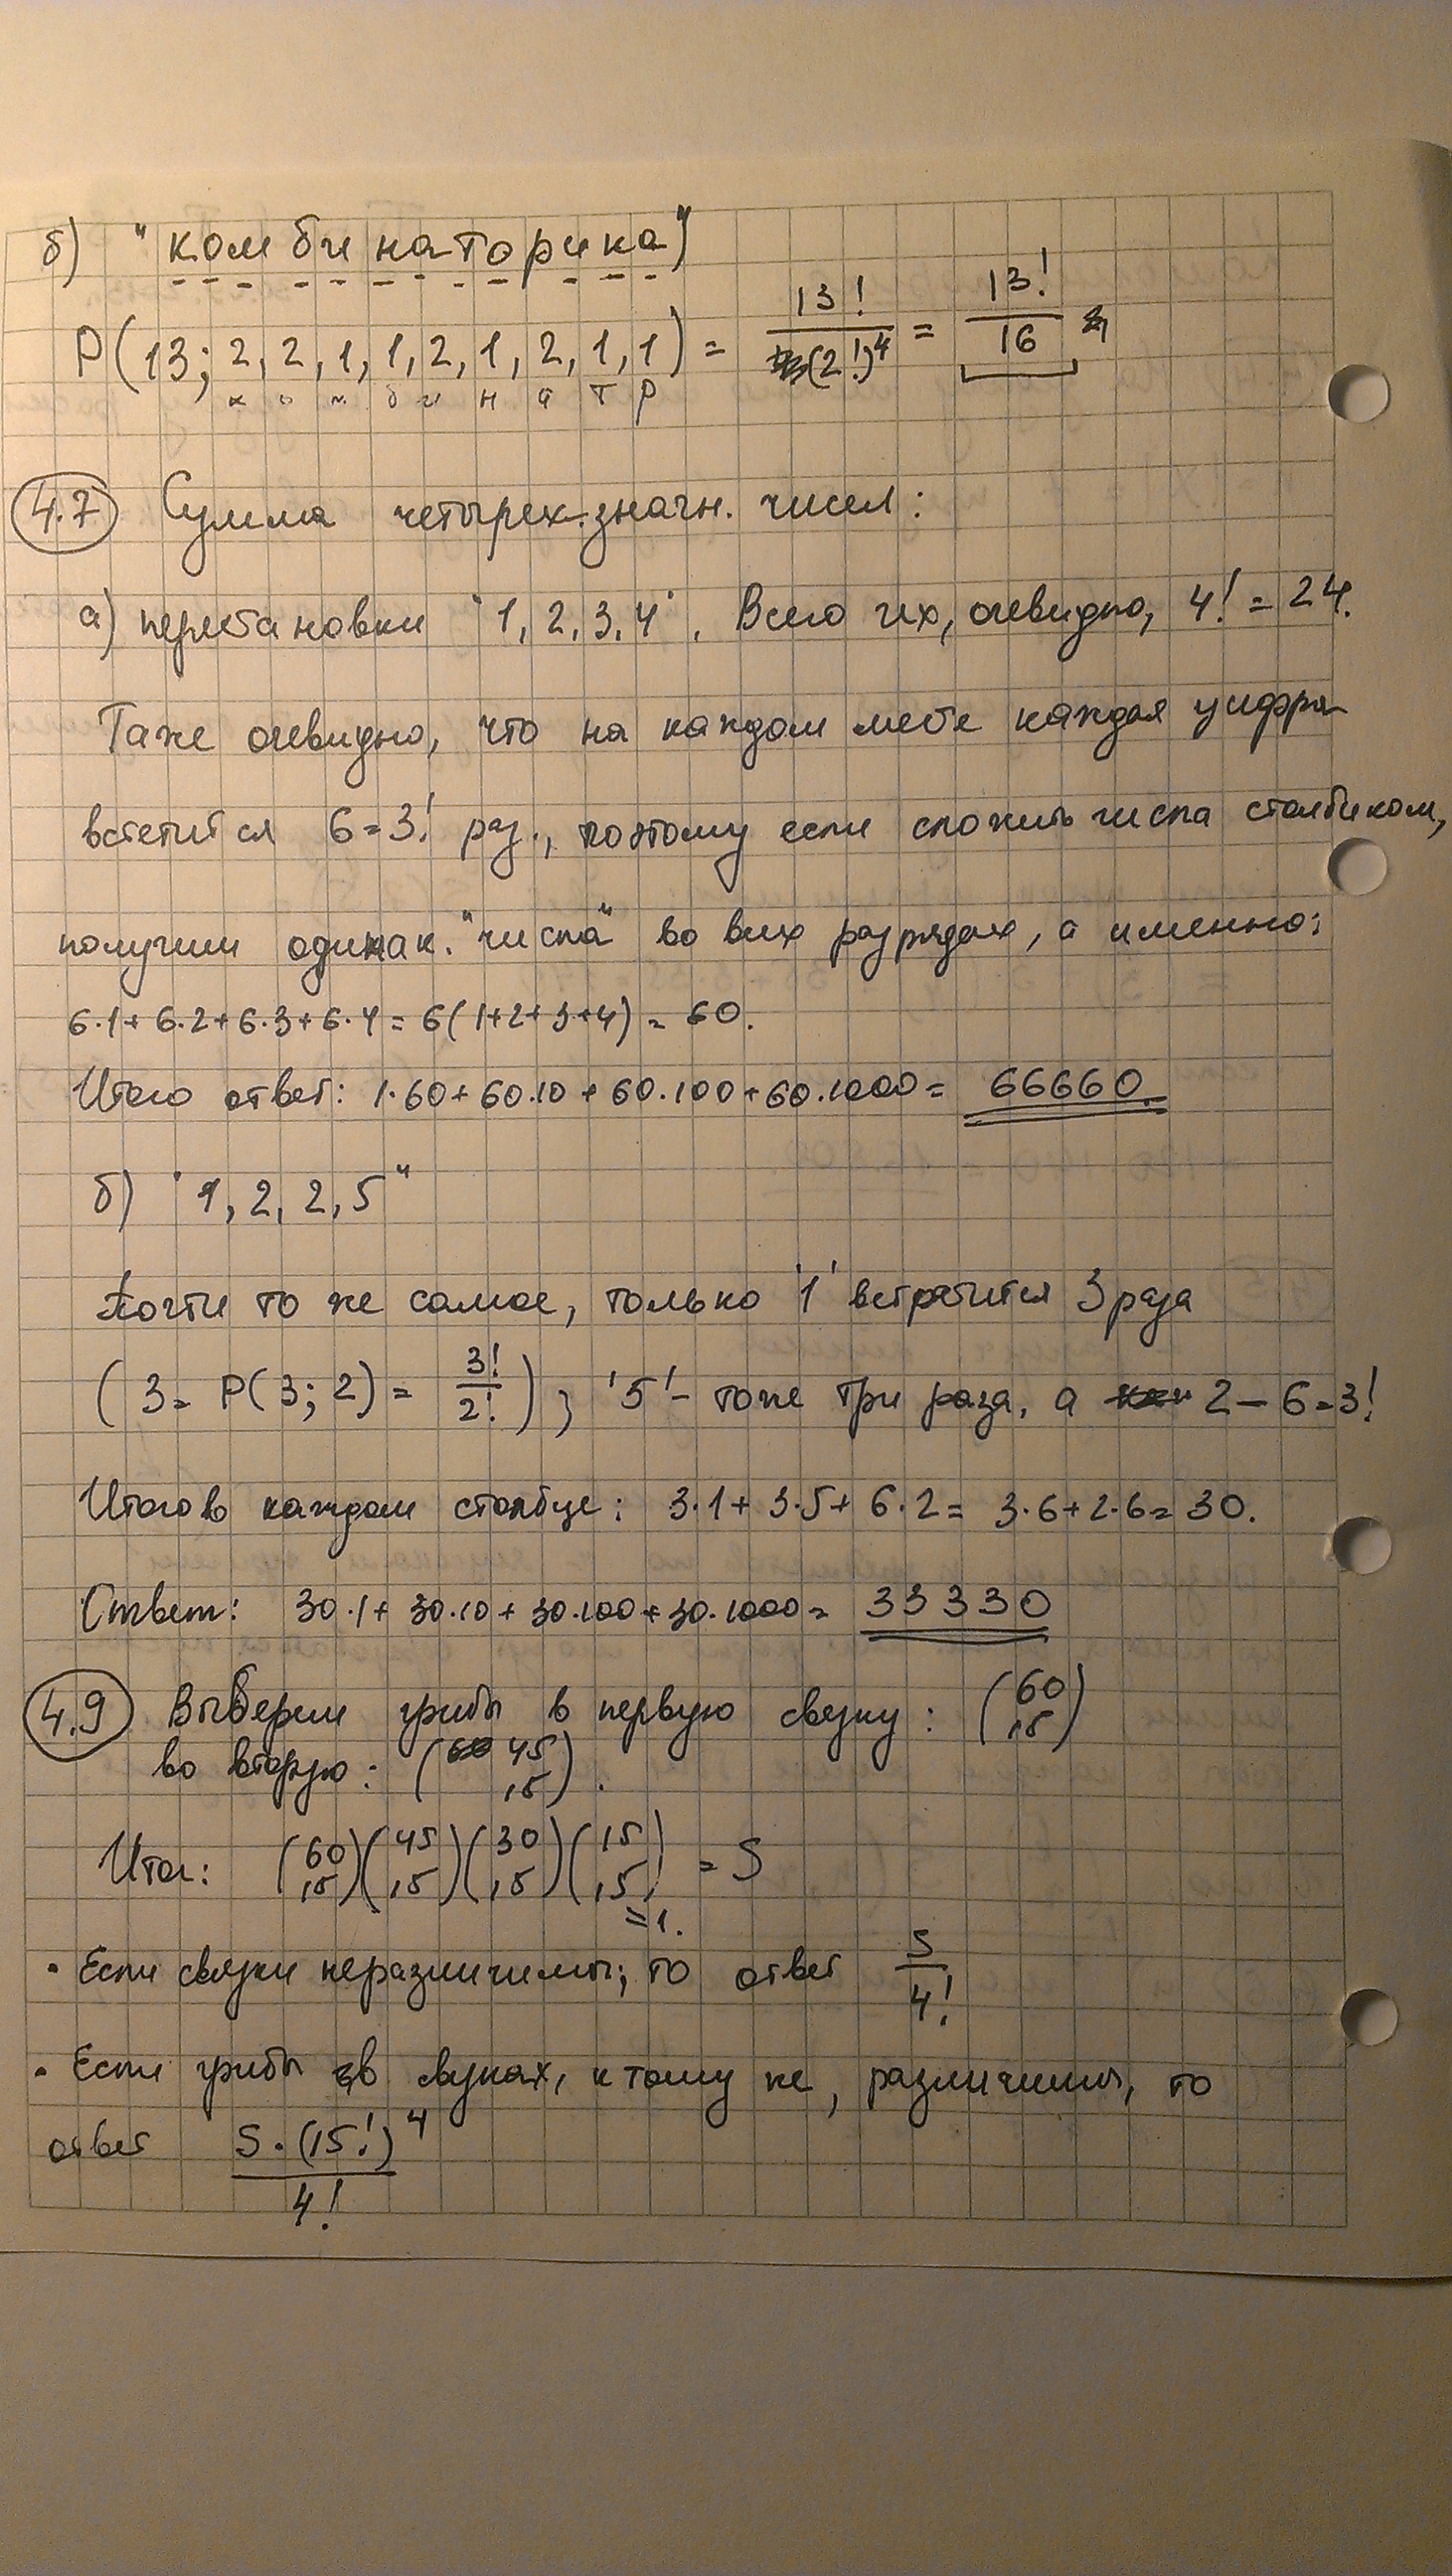 б) "комбинаторика"
P(13; 2, 2, 1, 1, 2, 1, 2, 1, 1) = 13!/(2!)^4 = 13!/16
к о м б и н а т р
4.7 Сумма четырех.значн. чисел:
а) перестановки "1, 2, 3, 4". Всего их, очевидно, 4! = 24.
Таже очевидно, что на каждом месте каждая цифра
встетится 6=3! раз., поэтому если сложить числа столбиком,
получим одинак. "числа" во всех разрядах, а именно:
6·1+6·2+6·3+6·4=6(1+2+3+4)=60.
Итого ответ: 1·60+60·10+60·100+60·1000= 66660.
б) "1, 2, 2, 5"
Почти то же самое, только '1' встретится 3 раза
(3= P(3; 2) = 3!/2!); '5' - тоже три раза, а 2 – 6=3!
Итого в каждом столбце: 3·1+3·5+6·2= 3·6+2·6=30.
Ответ: 30·1+30·10+30·100+30·1000= 33330
4.9 Выберем грибы в первую связку: (60 15)
во вторую: (45 15).
Итог: (60 15)(45 15)(30 15)(15 15) = S
=1.
• Если связки неразличимы, то ответ S/4!
• Если грибы в связках, к тому же, различимы, то
ответ S·(15!)^4/4!